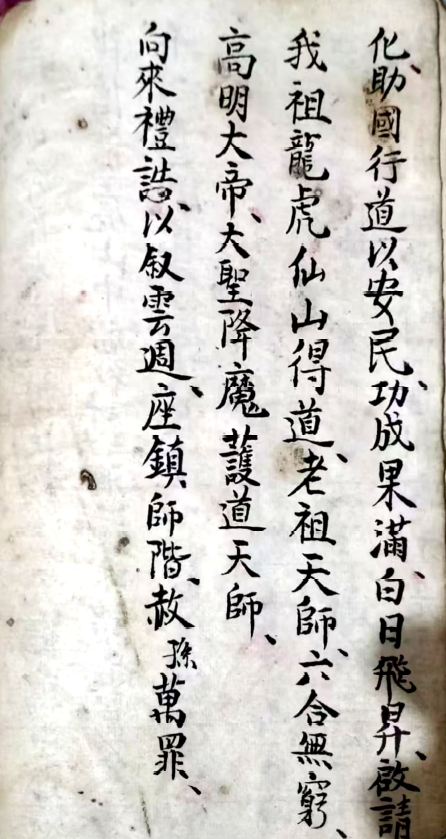 化、助國行道以安民、功成果滿、白日飛昇、啟請
我祖龍虎仙山得道、老祖天師、六合無窮、
高明大帝、大聖降魔護道天師、
向來禮誥、以叙雲週、座鎮師階、赦孫萬罪、